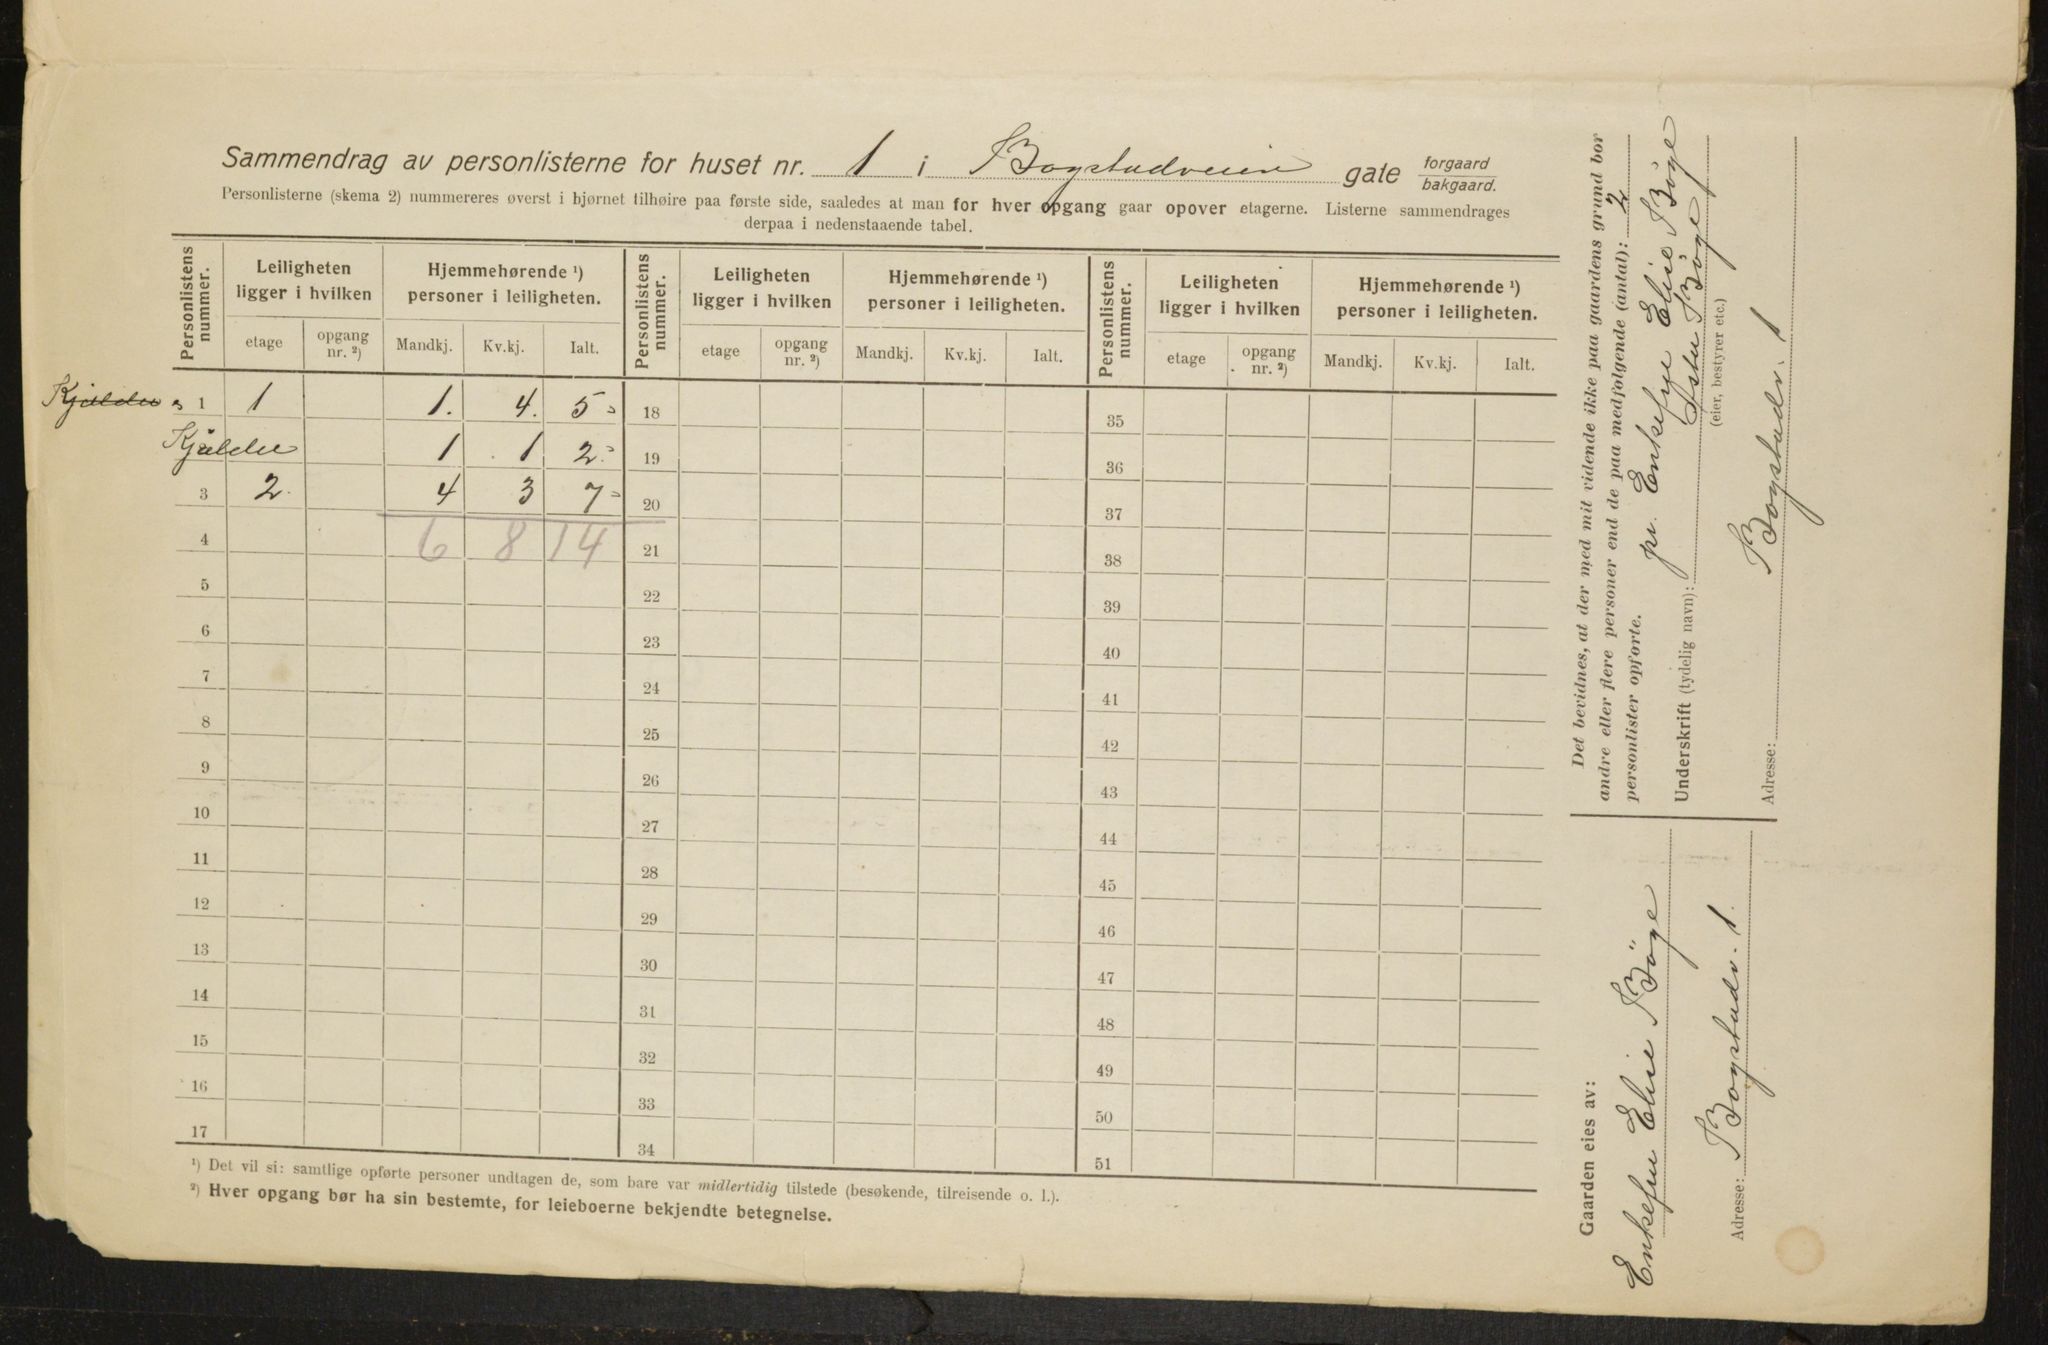 Sammendrag av personlisterne for huset nr. 1 i Bogstadveien gate forgaard bakgaard.
Personlisterne (skema 2) nummereres øverst i hjørnet tilhøire paa første side, saaledes at man for hver opgang gaar opover etagerne. Listerne sammendrages
derpaa i nedenstaaende tabel.
Personlistens nummer. Leiligheten ligger i hvilken Hjemmehørende ¹) personer i leiligheten. Personlistens nummer. Leiligheten ligger i hvilken Hjemmehørende ¹) personer i leiligheten. Personlistens nummer. Leiligheten ligger i hvilken Hjemmehørende ¹) personer i leiligheten.
etage opgang nr. ²) Mandkj. Kv.kj. Ialt. etage opgang nr. ²) Mandkj. Kv.kj. Ialt. etage opgang nr. ²) Mandkj. Kv.kj. Ialt.
Kjælder 1 1 1. 4. 5 18 35
Kjælder 1 1 2 19 36
3 2 4 3 7 20 37
4 6 8 14 21 38
5 22 39
6 23 40
7 24 41
8 25 42
9 26 43
10 27 44
11 28 45
12 29 46
13 30 47
14 31 48
15 32 49
16 33 50
17 34 51
¹) Det vil si: samtlige opførte personer undtagen de, som bare var midlertidig tilstede (besøkende, tilreisende o. l.).
²) Hver opgang bør ha sin bestemte, for leieboerne bekjendte betegnelse.
Det bevidnes, at der med mit vidende ikke paa gaardens grund bor
andre eller flere personer end de paa medfølgende (antal): 2
personlister opførte.
pr. Enkefrue Elise Böge
Underskrift (tydelig navn): Böge
(eier, bestyrer etc.)
Adresse: Bogstadv. 1
Gaarden eies av:
Enkefru Elise Böge
Adresse: Bogstadv. 1.